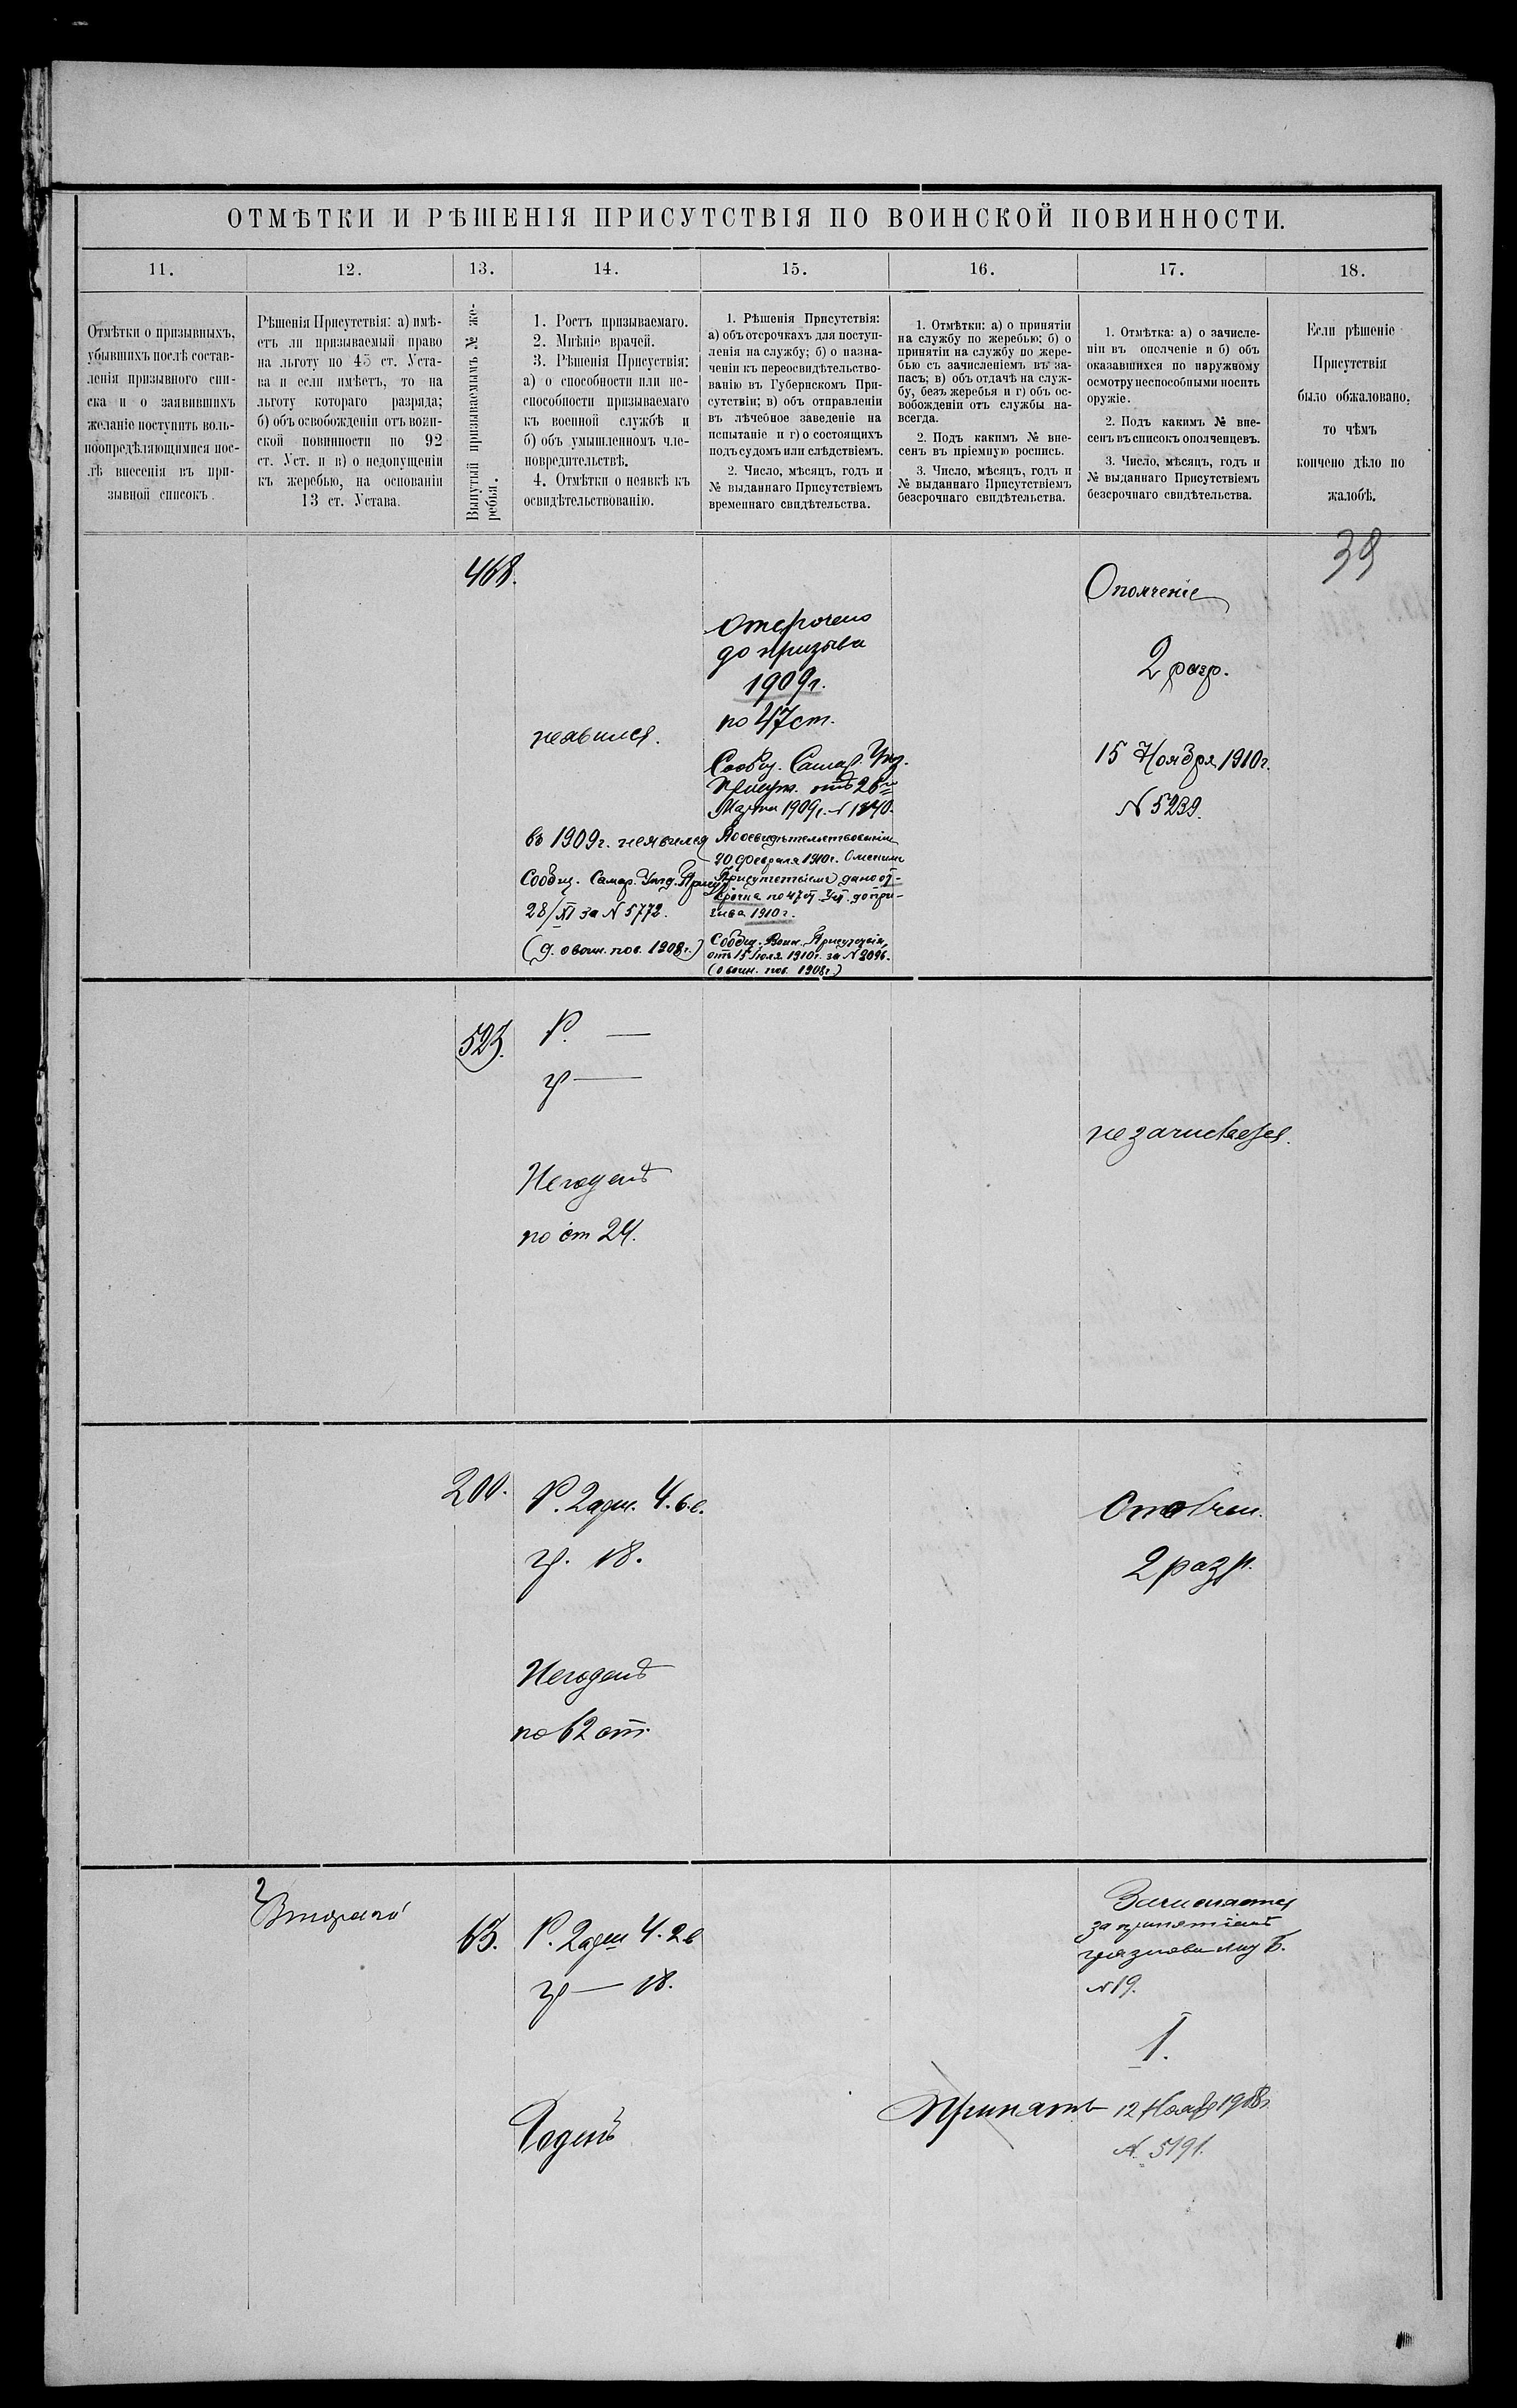 ОТМѢТКИ И РѢШЕНІЯ ПРИСУТСТВІЯ ПО ВОИНСКОЙ ПОВИННОСТИ.
11.
12.
13.
14.
15.
16.
17.
18.
Отмѣтки о призывныхъ,
убывшихъ послѣ состав-
ленія призывного спи-
ска и о заявившихъ
желаніе поступить воль-
ноопредѣляющимися пос-
лѣ внесенія въ при-
зывной списокъ.
Рѣшенія Присутствія: а) имѣ-
етъ ли призываемый право
на льготу по 45 ст. Уста-
ва и если имѣетъ, то на
льготу котораго разряда;
б) объ освобожденіи отъ воин-
ской повинности по 92
ст. Уст. и в) о недопущеніи
къ жеребью, на основаніи
13 ст. Устава.
Вынутый призываемымъ № же-
ребья.
1. Ростъ призываемаго.
2. Мнѣніе врачей.
3. Рѣшенія Присуствія:
а) о способности или не-
способности призываемаго
къ военной службѣ и
б) объ умышленномъ чле-
новредительствѣ.
4. Отмѣтки о неявкѣ къ
освидѣтельствованію.
1. Рѣшенія Присутствія:
а) объ отсрочкахъ для поступ-
ленія на службу; б) о назна-
ченіи къ переосвидѣтельство-
ванію въ Губернскомъ При-
сутствіи; в) объ отправленіи
въ лѣчебное заведеніе на
испытаніе и г) о состоящихъ
подъ судомъ или слѣдствіемъ.
2. Число, мѣсяцъ, годъ и
№ выданнаго Присутствіемъ
временнаго свидѣтельства.
1. Отмѣтки: а) о принятіи
на службу по жеребью; б) о
принятіи на службу по жере-
бью съ зачисленіемъ въ за-
пасъ; в) объ отдачѣ на служ-
бу, безъ жеребья и г) объ ос-
вобожденіи отъ службы на-
всегда.
2. Подъ какимъ № вне-
сенъ въ пріемную роспись.
3. Число, мѣсяцъ, годъ и
№ выданнаго Присутствіемъ
безсрочнаго свидѣтельства.
1. Отмѣтка: а) о зачисле-
ніи въ ополченіе и б) объ
оказавшихся по наружному
осмотру неспособными носить
оружіе.
2. Подъ какимъ № вне-
сенъ въ списокъ ополченцевъ.
3. Число, мѣсяцъ, годъ и
№ выданнаго Присутствіемъ
безсрочнаго свидѣтельства.
Если рѣшеніе
Присутствія
было обжаловано,
то чѣмъ
кончено дѣло по
жалобѣ.
39
468.
неявился.
въ 1909г. неявился
Сообщ. Самар. Уѣзд. Присут
28/XI за N 5772.
(д. о воин. пов. 1908г.)
Отсрочено
до призыва
1909г.
по 47 ст.
Сообщ. Самар. Уѣз.
Присут. отъ 26го
Марта 1909г. N 1840.
По освидѣтельствованіи
20 февраля 1910г. Омскимъ
Присутствіемъ дано от-
срочка по 47 ст. Уст. до при-
зыва 1910г.
Сообщ. Воин. Присутствія
отъ 15 Іюля 1910г. за N 2096.
(о воин. пов. 1908г.)
Ополченіе
2 разр.
15 Ноября 1910г.
N 5239.
523.
Р. —
гр —
Негоденъ
по ст 24.
не зачисляется.
200.
Р. 2 арш. 4. 6. в.
гр. 18.
Негоденъ
по 62 ст.
Ополчен.
2 разр.
2
Второго
63.
Р. 2 арш 4. 2 в
гр — 18.
Годенъ
Принять
Зачисляется
за принятіемъ
N 19.
1.
12 Нояб 1908г
N. 5191.